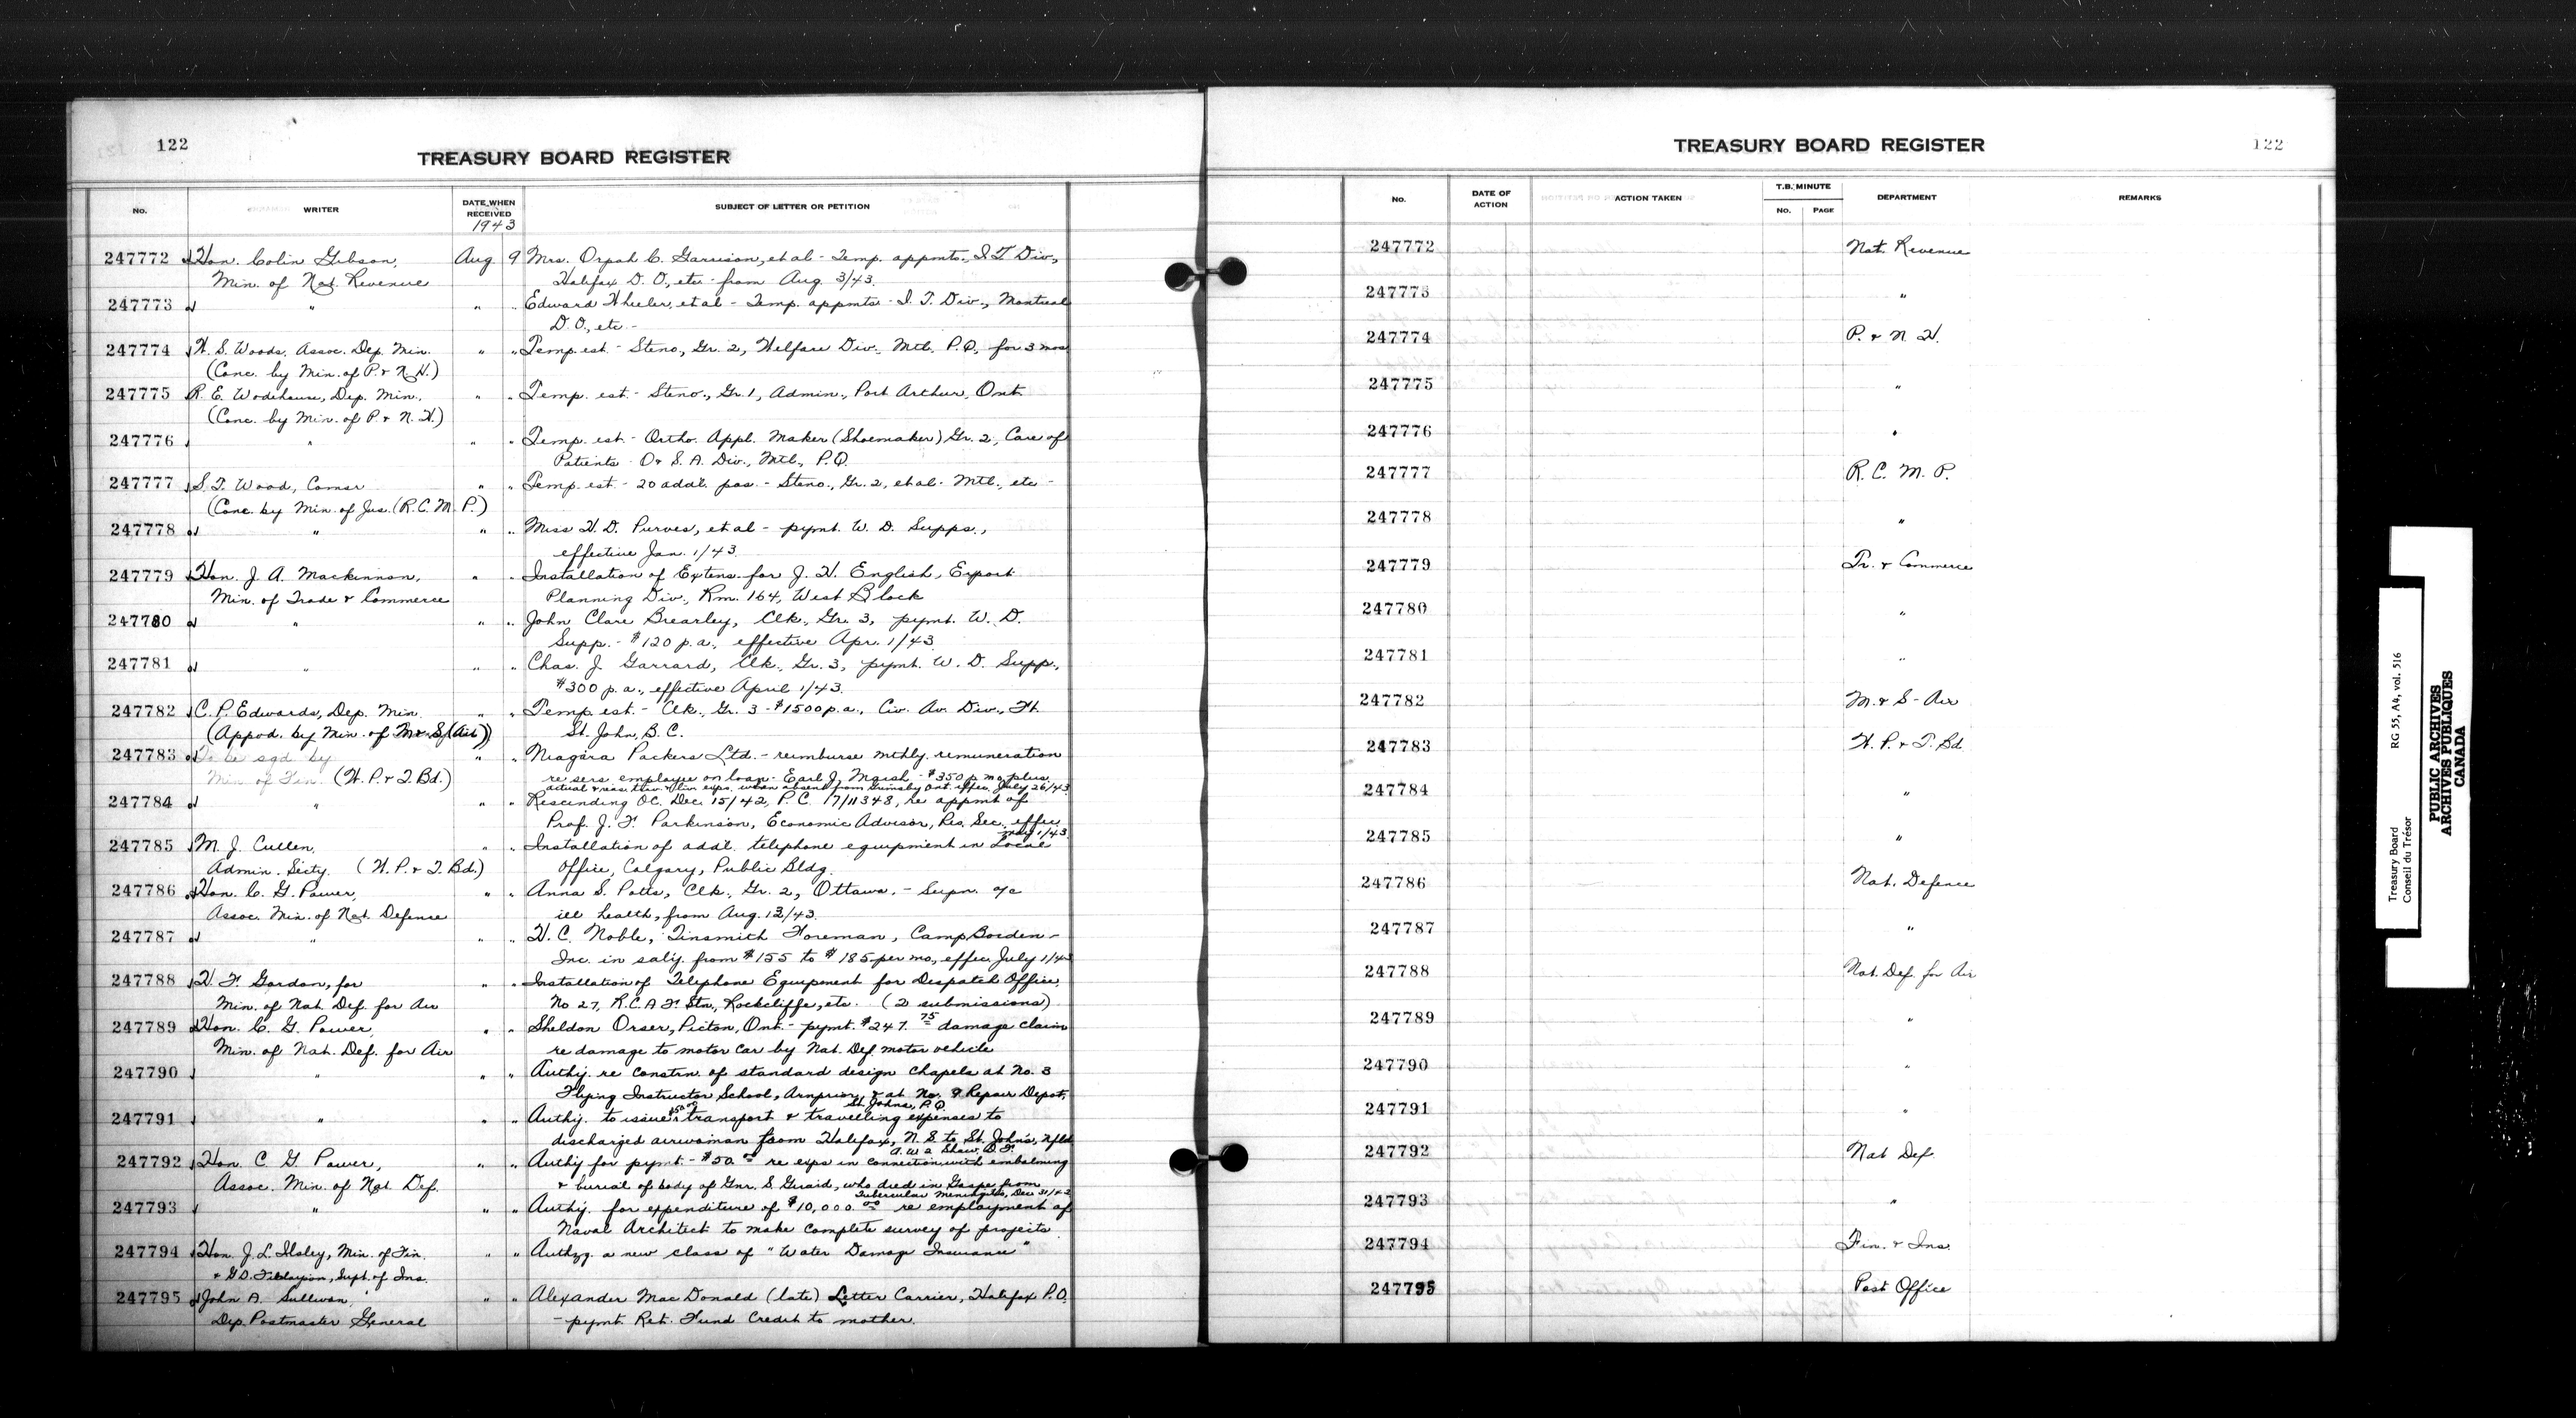 122
TREASURY BOARD REGISTER
No.
WRITER
DATE WHEN RECEIVED
1943
SUBJECT OF LETTER OR PETITION
247772 Hon. Colin Gibson, Aug. 9 Mrs. Orpah C. Garrison, et al - Temp. appmts. I.T. Div.,
Min. of Nat. Revenue Halifax D.O., etc - from Aug. 3/43.
247773 " " " Edward Wheeler, et al - Temp. appmts - I.T. Div., Montreal
D.O., etc -
247774 W. S. Woods, Assoc. Dep. Min. " " Temp. est - Steno, Gr. 2, Welfare Div., Mtl. P.Q. for 3 mos
(Conc. by Min. of P. & N. H.)
247775 R. E. Wodehouse, Dep. Min., " " Temp. est. - Steno., Gr. 1, Admin., Port Arthur, Ont.
(Conc. by Min. of P. & N. H.)
247776 " " " Temp. est. - Ortho. Appl. Maker (Shoemaker) Gr. 2, Care of
Patients - O & S. A. Div., Mtl., P.Q.
247777 S. T. Wood, Comsr " " Temp. est - 20 addl. pos. - Steno., Gr. 2, et al - Mtl., etc -
(Conc. by Min. of Jus. (R.C.M.P.)
247778 " " " Miss H. D. Purves, et al - pymt. W. D. Supps.,
effective Jan. 1/43.
247779 Hon. J. A. Mackinnon, " " Installation of Extens. for J. H. English, Export
Min. of Trade & Commerce Planning Div., Rm. 164, West Block
247780 " " " John Clare Brearley, Clk., Gr. 3, pymt. W. D.
Supp. - $120 p.a., effective Apr. 1/43.
247781 " " " Chas. J. Garrard, Clk., Gr. 3, pymt. W. D. Supp.,
$300 p.a., effective April 1/43.
247782 C. P. Edwards, Dep. Min. " " Temp. est. - Clk., Gr. 3 - $1500 p.a., Civ. Av. Div., Ft.
(Appod. by Min. of M & S (Air)) St. John, B.C.
247783 To be sgd by " " Niagara Packers Ltd. - reimburse mthly. remuneration
Min of Fin. (W.P. & T. Bd.) re sers. employee on loan - Earl J. Marsh - $350 p. mo. plus
actual & reas. trav. & liv. exps. when absent from Grimsby Ont. effec. July 26/43.
247784 " " " Rescinding O.C. Dec. 15/42, P.C. 17/11348, re appmt of
Prof. J. F. Parkinson, Economic Advisor, Res. Sec. effec.
May 1/43.
247785 M. J. Cullen, " " Installation of addl. telephone equipment in Local
Admin. Secty. (W.P. & T. Bd.) Office, Calgary, Public Bldg.
247786 Hon. C. G. Power, " " Anna S. Potts, Clk., Gr. 2, Ottawa. - Supn. a/c
Assoc. Min. of Nat. Defence ill health, from Aug. 13/43.
247787 " " " H. C. Noble, Tinsmith Foreman, Camp Borden -
Inc. in saly. from $155 to $185 per mo., effec. July 1/43
247788 H. F. Gordon, for " " Installation of Telephone Equipment for Despatch Office
Min. of Nat. Def. for Air No 27, R.C.A.F. Stn., Rockcliffe, etc. (2 submissions)
247789 Hon. C. G. Power, " " Sheldon Orser, Picton, Ont. - pymt. $247.75 damage claim
Min. of Nat. Def. for Air re damage to motor car by Nat. Def. motor vehicle
247790 " " " Authy. re constrn. of standard design chapels at No. 3
Flying Instructor School, Arnprior, & at No. 9 Repair Depot,
St. Johns, P.Q.
247791 " " " Authy. to issue transport & travelling expenses to
discharged airwoman from Halifax, N.S. to St. John's, Nfld
A.W.2 Shaw, B.F.
247792 Hon. C. G. Power, " " Authy for pymt - $50.00 re exps in connection with embalming
Assoc. Min. of Nat. Def. & burial of body of Gnr. S. Guaid, who died in Gaspe from
tubercular meningitis, Dec. 31/42
247793 " " " Authy. for expenditure of $10,000.00 re employment of
Naval Architect to make complete survey of projects
247794 Hon. J. L. Ilsley, Min. of Fin. " " Authzg. a new class of "Water Damage Insurance"
& G. D. Finlayson, Supt. of Ins.
247795 John A. Sullivan, " " Alexander MacDonald (late) Letter Carrier, Halifax P.O.
Dep. Postmaster General - pymt. Ret. Fund Credit to mother.
TREASURY BOARD REGISTER
122
No.
DATE OF ACTION
ACTION TAKEN
T.B. MINUTE
No. PAGE
DEPARTMENT
REMARKS
247772 Nat. Revenue
247773 "
247774 P. & N. H.
247775 "
247776 "
247777 R. C. M. P.
247778 "
247779 Tr. & Commerce
247780 "
247781 "
247782 M. & S - Air
247783 W. P. & T. Bd.
247784 "
247785 "
247786 Nat. Defence
247787 "
247788 Nat. Def. for Air
247789 "
247790 "
247791 "
247792 Nat Def.
247793 "
247794 Fin. & Ins.
247795 Post Office
Treasury Board
Conseil du Trésor
RG 55, A4, vol. 516
PUBLIC ARCHIVES
ARCHIVES PUBLIQUES
CANADA